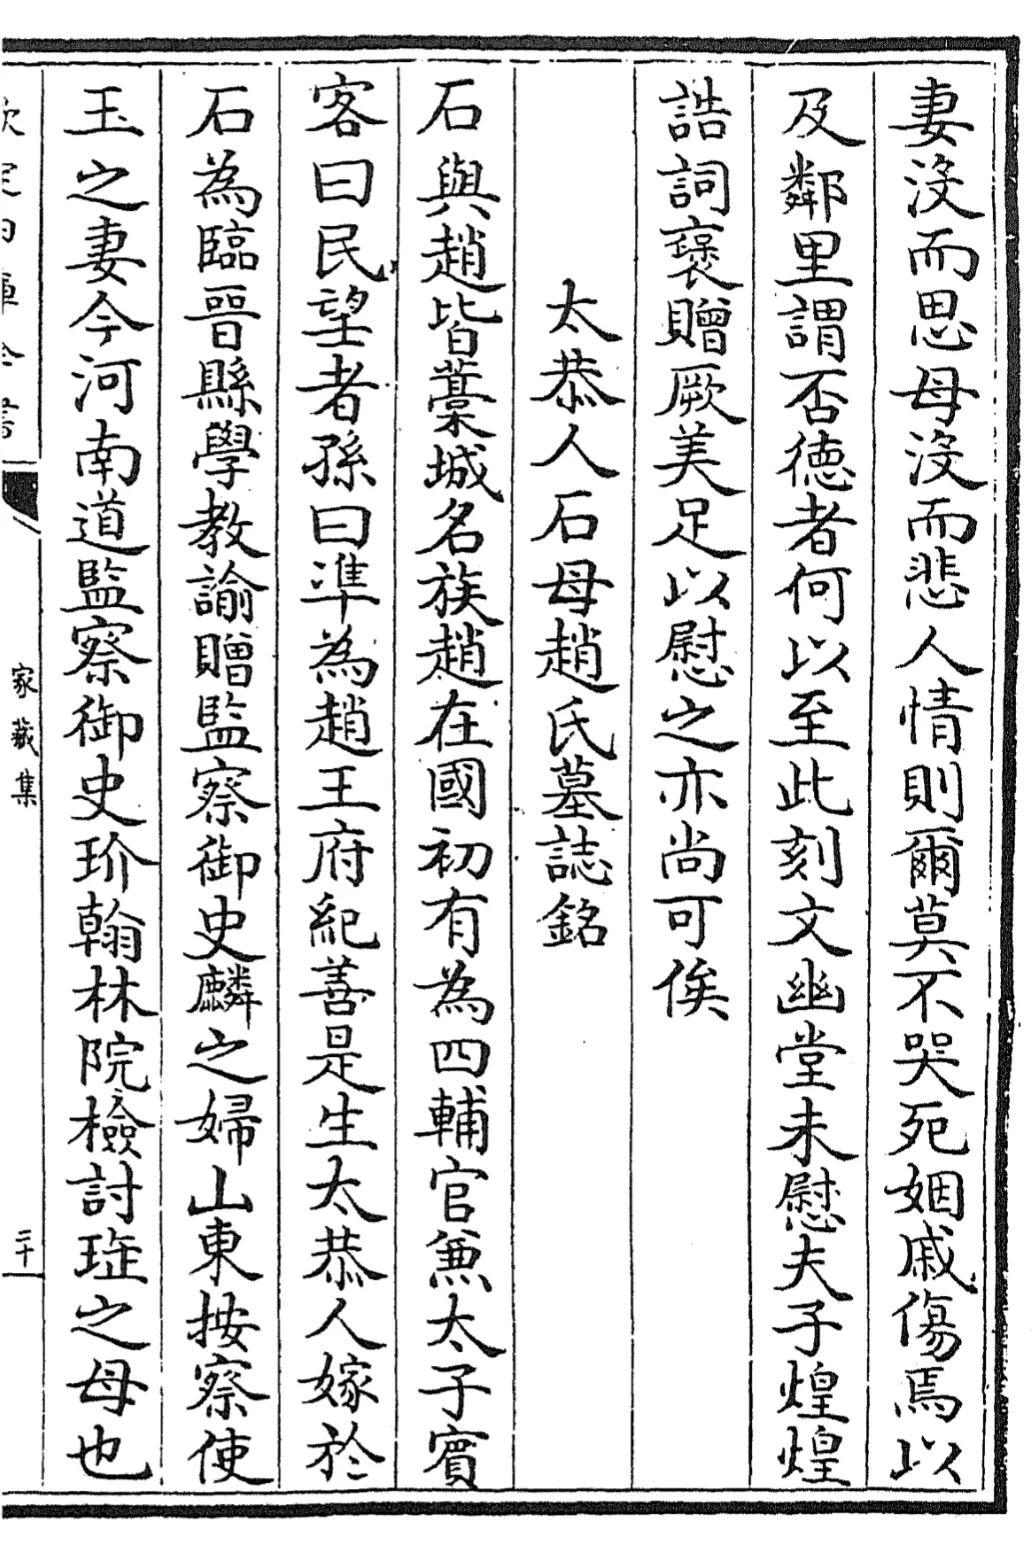 妻沒而思母沒而悲人情則爾莫不哭死姻戚傷焉以
及鄰里謂否德者何以至此刻文幽堂未慰夫子煌煌
誥詞褒贈厥美足以慰之亦尚可俟
太恭人石母趙氏墓誌銘
石與趙皆藁城名族趙在國初有為四輔官兼太子賓
客曰民望者孫曰凖為趙王府紀善是生太恭人嫁於
石為臨晉縣學教諭贈監察御史麟之婦山東按察使
玉之妻今河南道監察御史玠翰林院檢討珤之母也
家藏集
二十